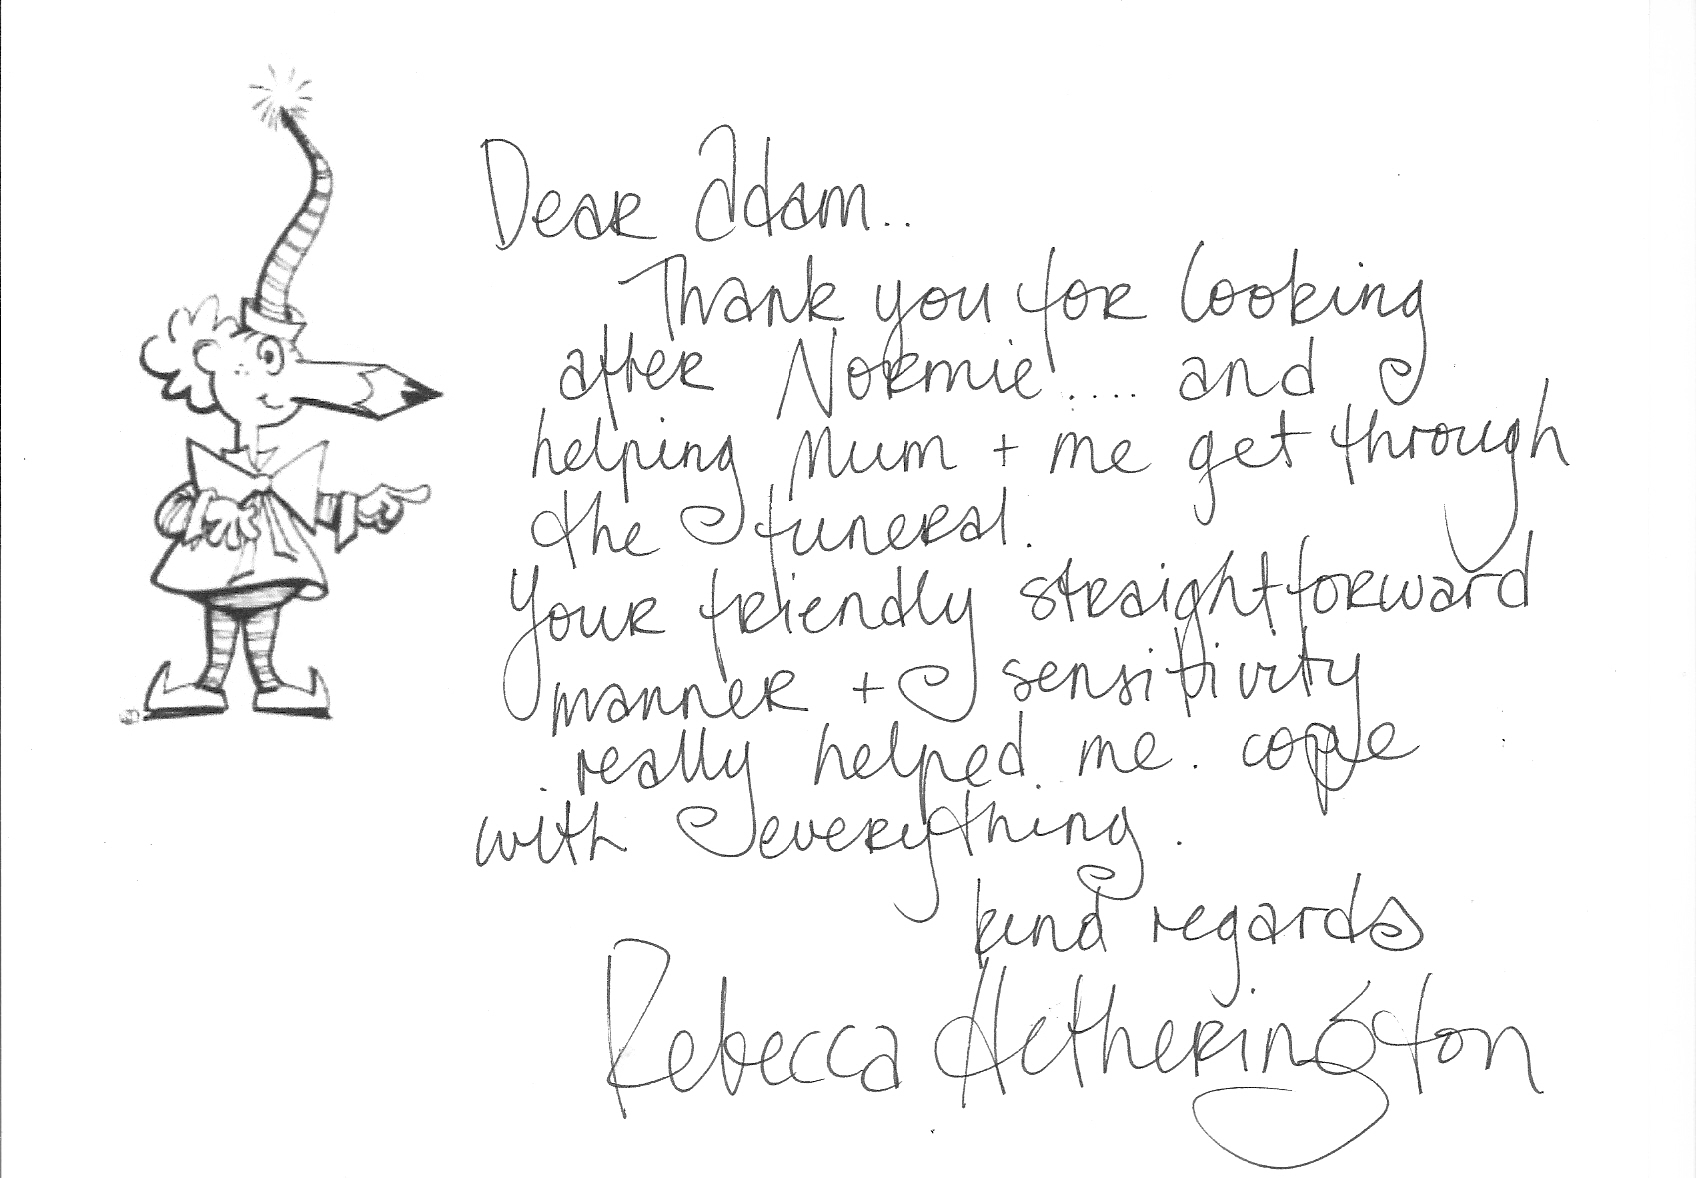 Dear Adam..
Thank you for looking
after Normie.... and
helping Mum + me get through
the funeral.
Your friendly straightforward
manner + sensitivity
really helped me cope
with everything.
kind regards
Rebecca Hetherington